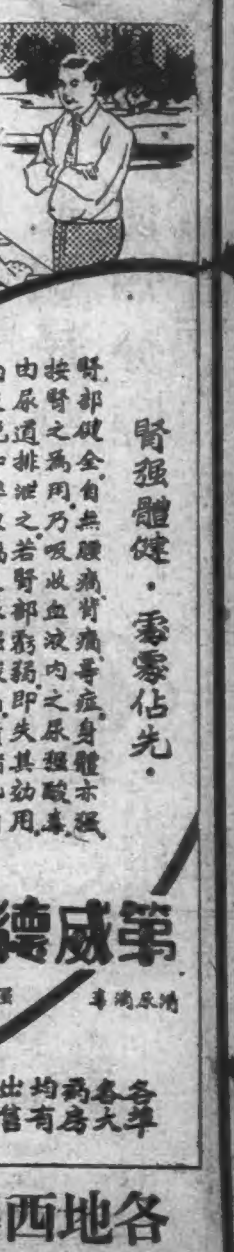 腎强體健．處處佔先．
腎部健全。自無腰痛背痛等症。身體亦强。
按腎之為用。乃吸收血液内之尿强酸毒。
由尿道排泄之。若腎部虧弱。即失其効用。
第威德
清尿消毒
各埠
各大
葯房
均有
出售
各地西